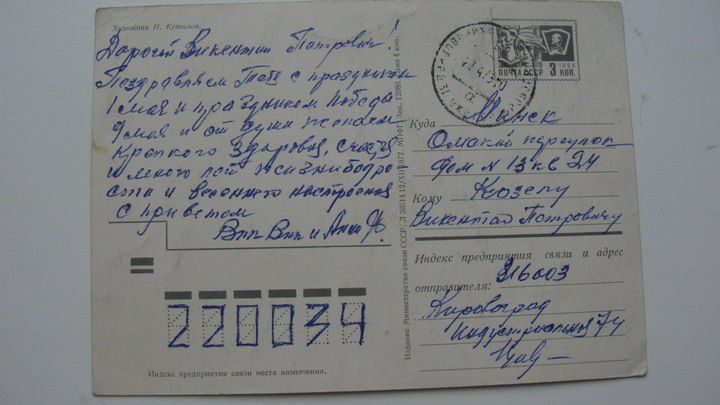 Художник Н. Кутилов.
Дорогой Викентий Петрович!
Поздравляем Тебя с праздником
1 мая и праздником Победы
9 мая и от души желаем
крепкого здоровья, счастья
и много лет жизни бодро
сти и весеннего настроения
с приветом
и Анна
ПОЧТА СССР 3 КОП.
1966
Куда Минск
Омский переулок
дом N 13 кв 24
Кому Козелу
Викентию Петровичу
Индекс предприятия связи и адрес
отправителя: 316003
Кировоград
Индустриальная 74
220034
Индекс предприятия связи места назначения.
Издание Министерства связи СССР.